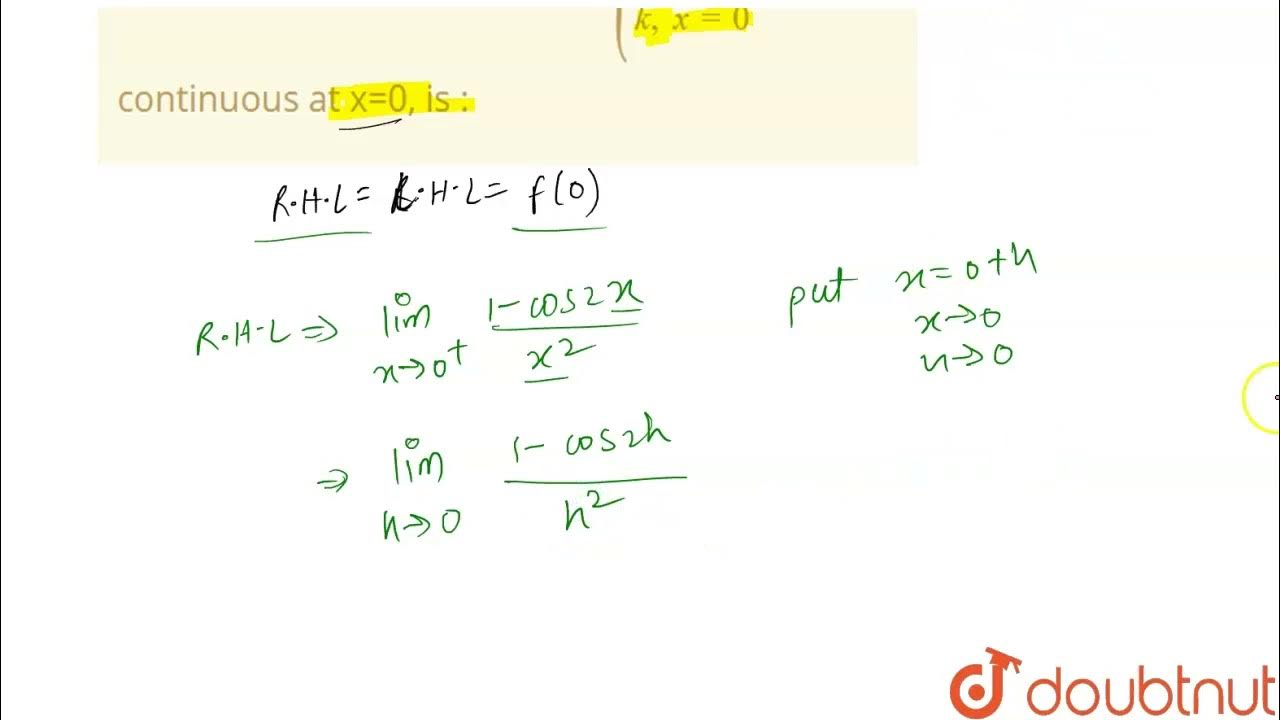 k, x = 0
continuous at x=0, is :
R.H.L = L.H.L = f(0)
R.H.L ⇒ lim x→0+ 1-cos2x / x2
put x=0+h
x→0
h→0
⇒ lim h→0 1-cos2h / h2
doubtnut